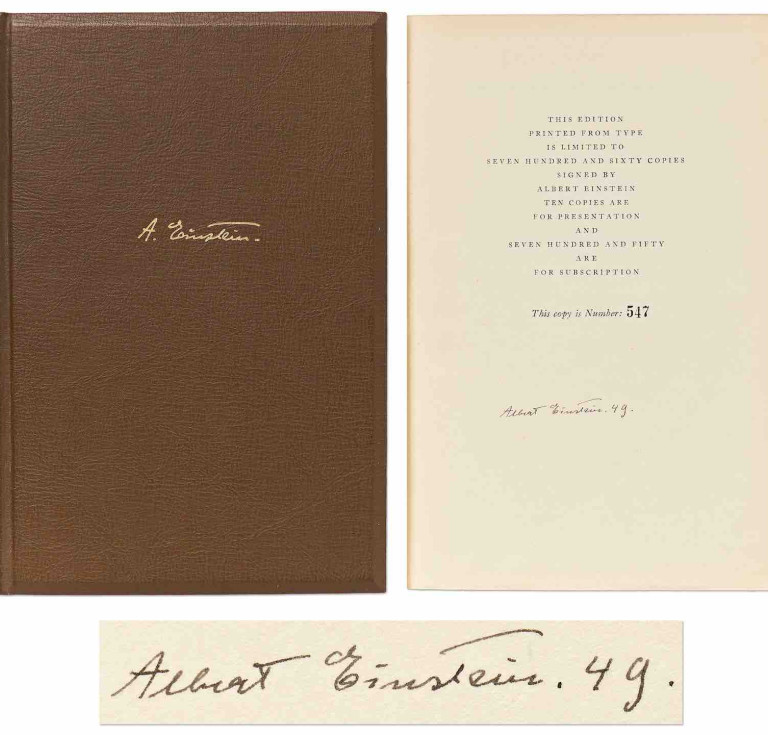 A. Einstein.
THIS EDITION
PRINTED FROM TYPE
IS LIMITED TO
SEVEN HUNDRED AND SIXTY COPIES
SIGNED BY
ALBERT EINSTEIN
TEN COPIES ARE
FOR PRESENTATION
AND
SEVEN HUNDRED AND FIFTY
ARE
FOR SUBSCRIPTION
This copy is Number: 547
Albert Einstein. 49.
Albert Einstein. 49.